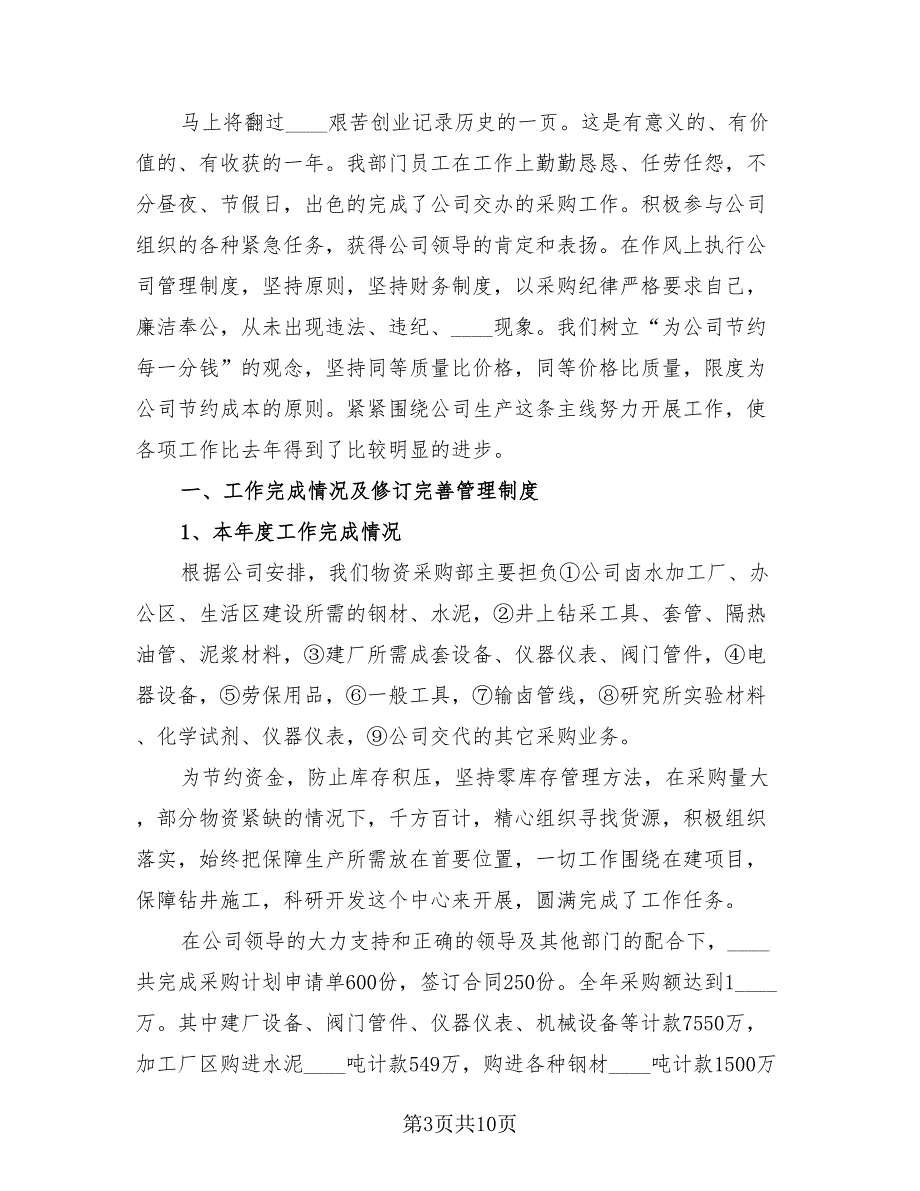 马上将翻过____艰苦创业记录历史的一页。这是有意义的、有价
值的、有收获的一年。我部门员工在工作上勤勤恳恳、任劳任怨，不
分昼夜、节假日，出色的完成了公司交办的采购工作。积极参与公司
组织的各种紧急任务，获得公司领导的肯定和表扬。在作风上执行公
司管理制度，坚持原则，坚持财务制度，以采购纪律严格要求自己，
廉洁奉公，从未出现违法、违纪、____现象。我们树立“为公司节约
每一分钱”的观念，坚持同等质量比价格，同等价格比质量，限度为
公司节约成本的原则。紧紧围绕公司生产这条主线努力开展工作，使
各项工作比去年得到了比较明显的进步。
一、工作完成情况及修订完善管理制度
1、本年度工作完成情况
根据公司安排，我们物资采购部主要担负①公司卤水加工厂、办
公区、生活区建设所需的钢材、水泥，②井上钻采工具、套管、隔热
油管、泥浆材料，③建厂所需成套设备、仪器仪表、阀门管件，④电
器设备，⑤劳保用品，⑥一般工具，⑦输卤管线，⑧研究所实验材料
、化学试剂、仪器仪表，⑨公司交代的其它采购业务。
为节约资金，防止库存积压，坚持零库存管理方法，在采购量大
，部分物资紧缺的情况下，千方百计，精心组织寻找货源，积极组织
落实，始终把保障生产所需放在首要位置，一切工作围绕在建项目，
保障钻井施工，科研开发这个中心来开展，圆满完成了工作任务。
在公司领导的大力支持和正确的领导及其他部门的配合下，____
共完成采购计划申请单600份，签订合同250份。全年采购额达到1____
万。其中建厂设备、阀门管件、仪器仪表、机械设备等计款7550万，
加工厂区购进水泥____吨计款549万，购进各种钢材____吨计款1500万
第3页共10页